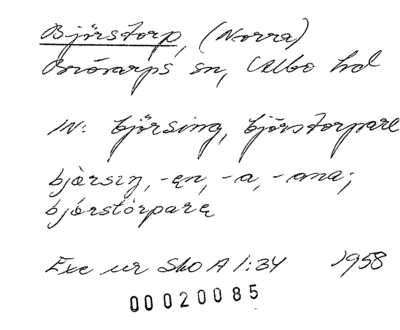 Björstorp, (Norra)
Brösarps sn, Albo hd
In: björsing, björstorpare
bjàrsıŋ, -ęn, -a, -ana;
bjǿrstòrparę
Exc ur Sko A 1:34 1958
00020085